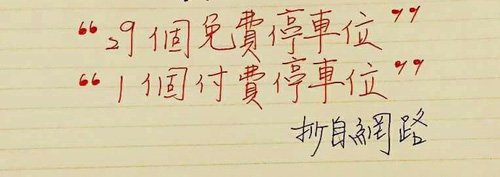 “29個免費停車位”
“1個付費停車位”
抄自網路